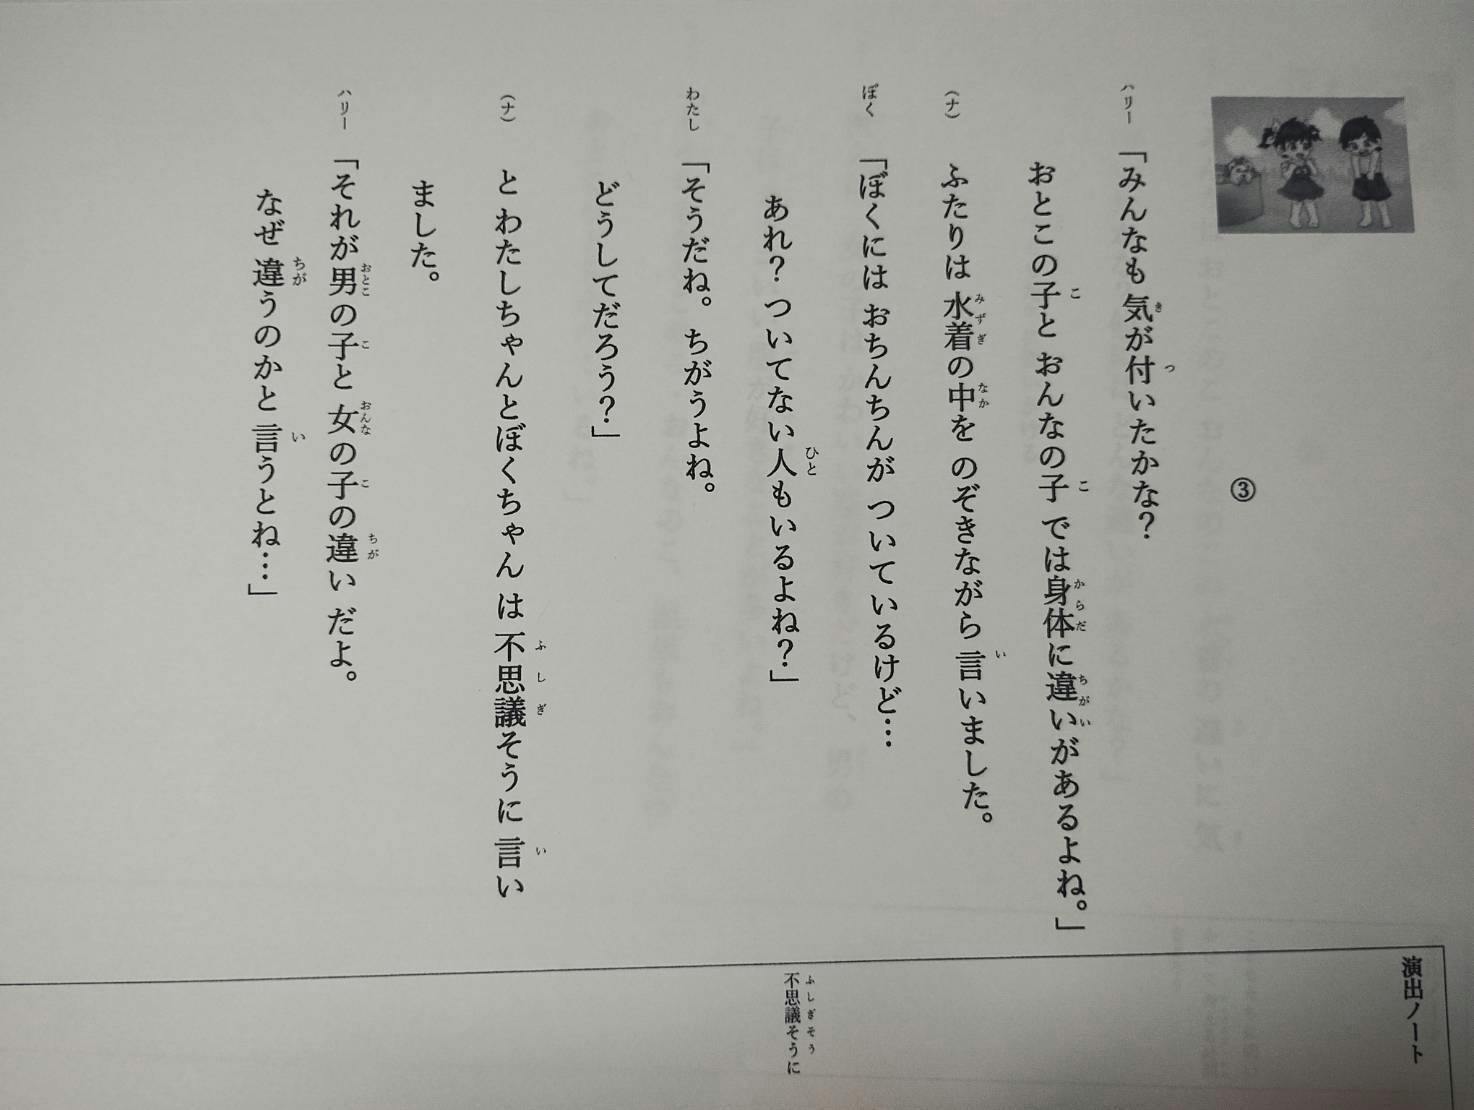 ③
ハリー 「みんなも 気が付いたかな?
おとこの子と おんなの子 では身体に違いがあるよね。」
(ナ) ふたりは 水着の中を のぞきながら 言いました。
ぼく 「ぼくには おちんちんが ついているけど…
あれ? ついてない人もいるよね?」
わたし 「そうだね。 ちがうよね。
どうしてだろう?」
(ナ) と わたしちゃんとぼくちゃん は 不思議そうに 言い
ました。
ハリー 「それが男の子と 女の子の違い だよ。
なぜ 違うのかと 言うとね…」
演出ノート
不思議そうに